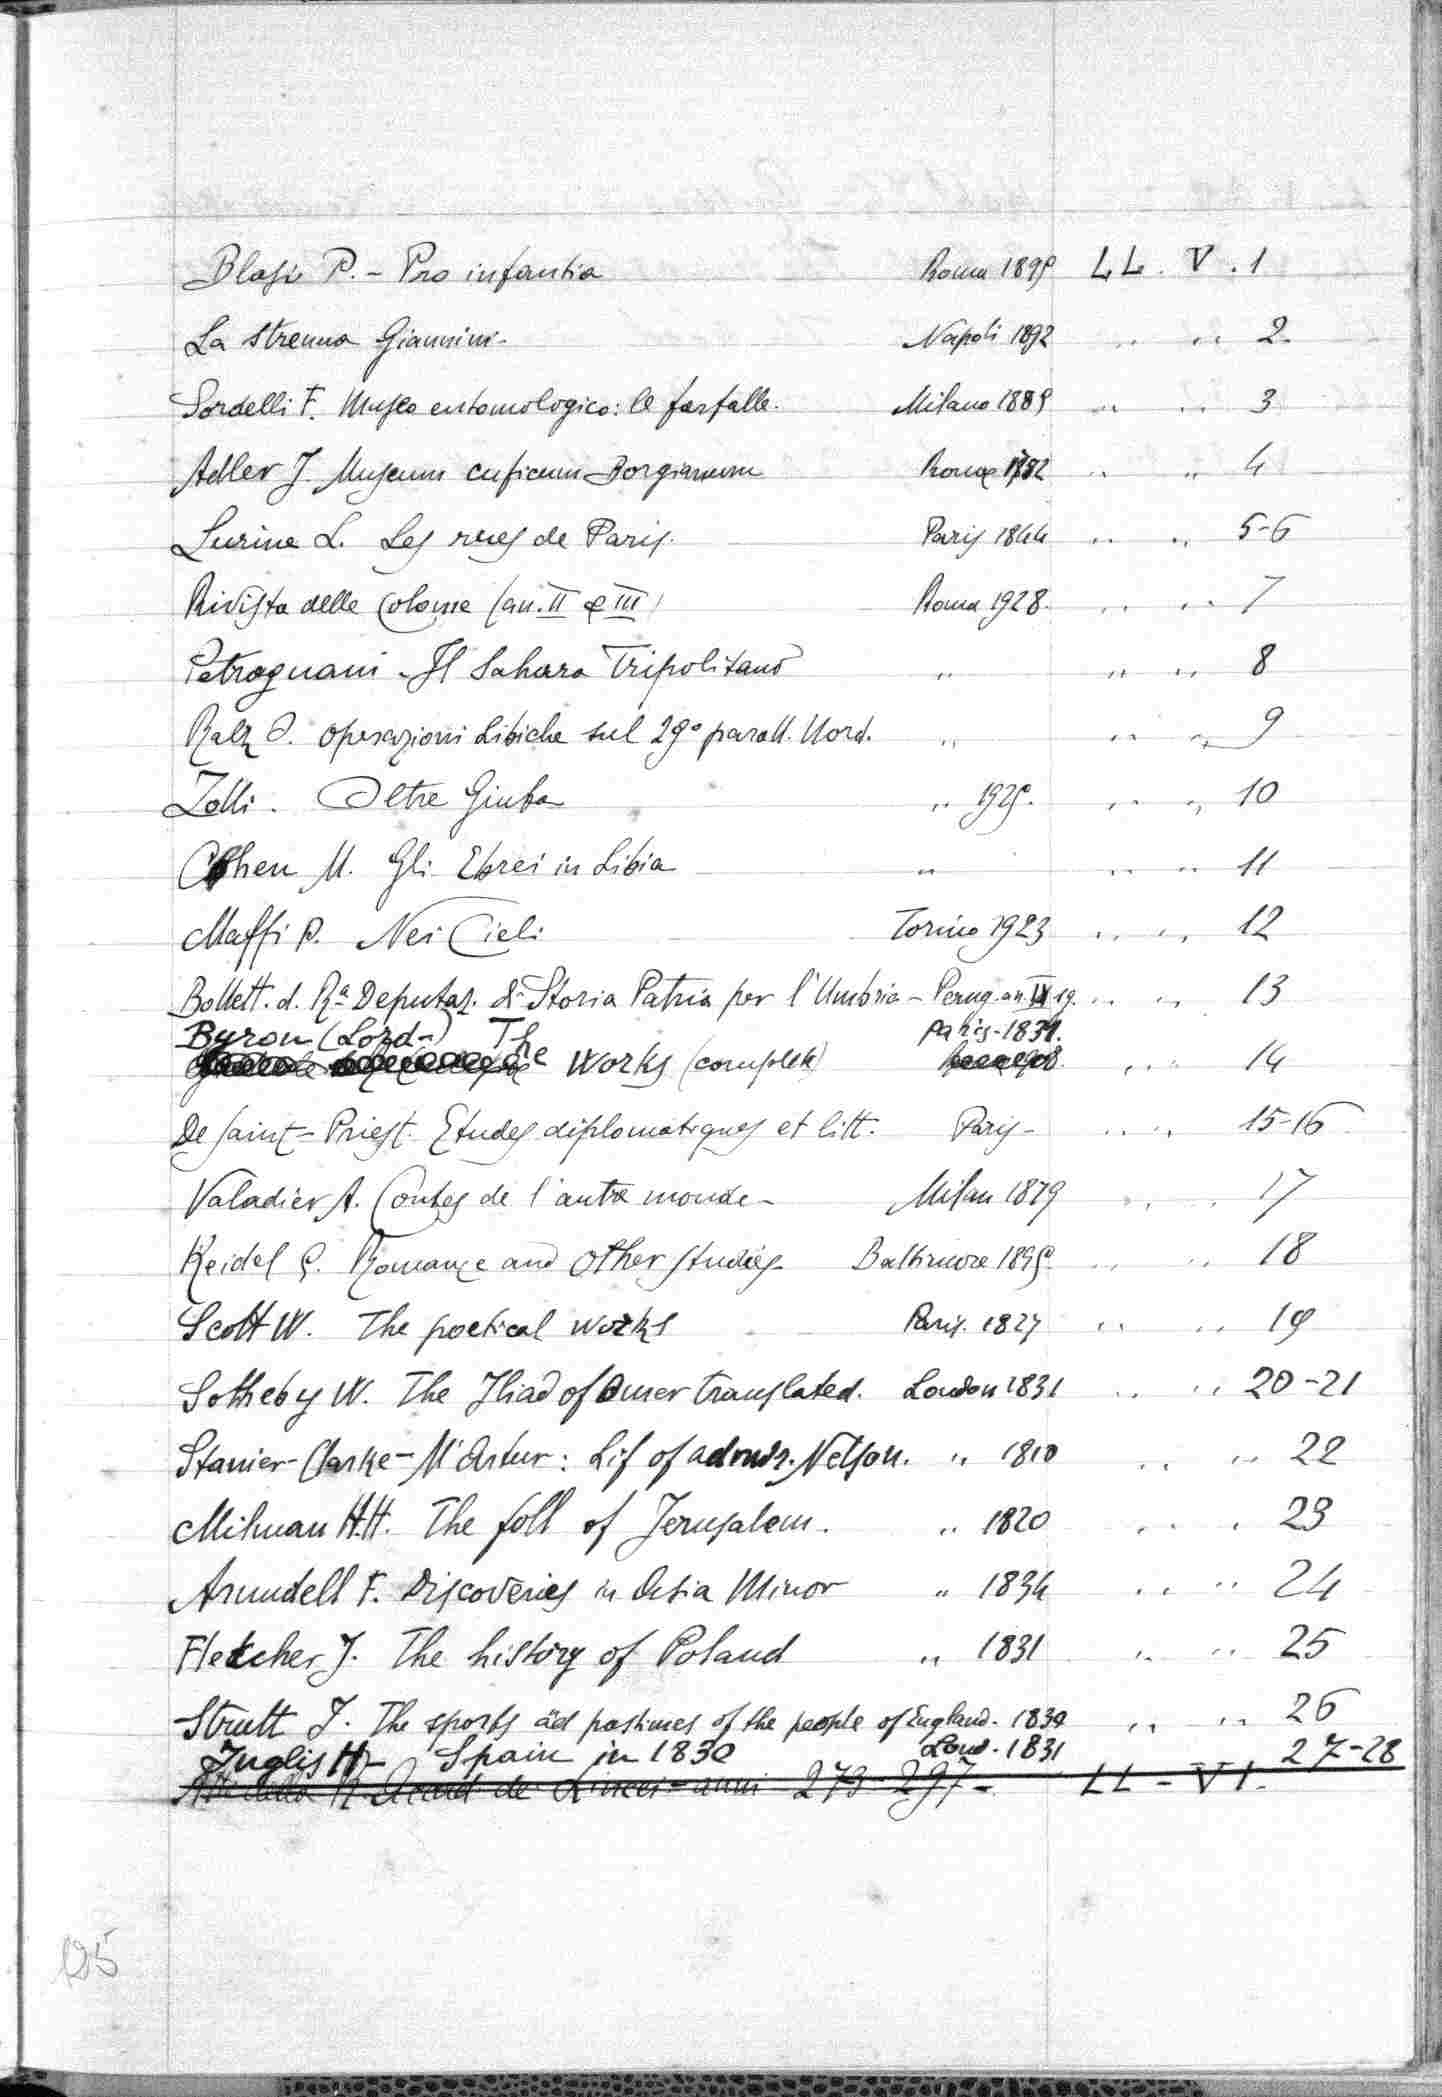 Blasi P. - Pro infantia Roma 1899 LL. V. 1
La strenna Giannini - Napoli 1892 " " 2
Sordelli F. Museo entomologico: le farfalle. Milano 1889 " " 3
Adler J. Museum cuficum Borgianum Romae 1782 " " 4
Lurine L. Les rues de Paris. Paris 1844 " " 5-6
Rivista delle Colonie (an. II e III) Roma 1928 " " 7
Petragnani - Il Sahara Tripolitano " " " 8
Balz O. operazioni Libiche sul 29° parall. Nord. " " " 9
Zolli. Oltre Giuba " 1929. " " 10
Cohen M. Gli Ebrei in Libia " " " 11
Maffi P. Nei Cieli Torino 1923 " " 12
Bollett. d. Rª Deputaz. di Storia Patria per l'Umbria - Perug. an. IX 19. " " 13
Byron (Lord -) The Paris - 1831.
Works (complete) " " 14
De Saint-Priest. Etudes diplomatiques et litt. Paris - " " 15-16
Valadier A. Contes de l'autre monde - Milan 1879 " " 17
Keidel G. Romance and other studies - Baltimore 1895 " " 18
Scott W. The poetical works Paris. 1827 " " 19
Sotheby W. The Iliad of Omer translated. London 1831 " " 20-21
Stanier-Clarke-M'Artur: Lif of admir. Nelson. " 1810 " " 22
Milman H.H. The foll of Jerusalem. " 1820 " " 23
Arundell F. Discoveries in Asia Minor " 1834 " " 24
Fletcher J. The history of Poland " 1831 " " 25
Strutt J. The sports ad pastimes of the people of England. 1830 " " 26
Inglis H - Spain in 1830 Lond. 1831 27-28
Atti della R. Accad. de Lincei - anni 273-297 - LL - VI -
195